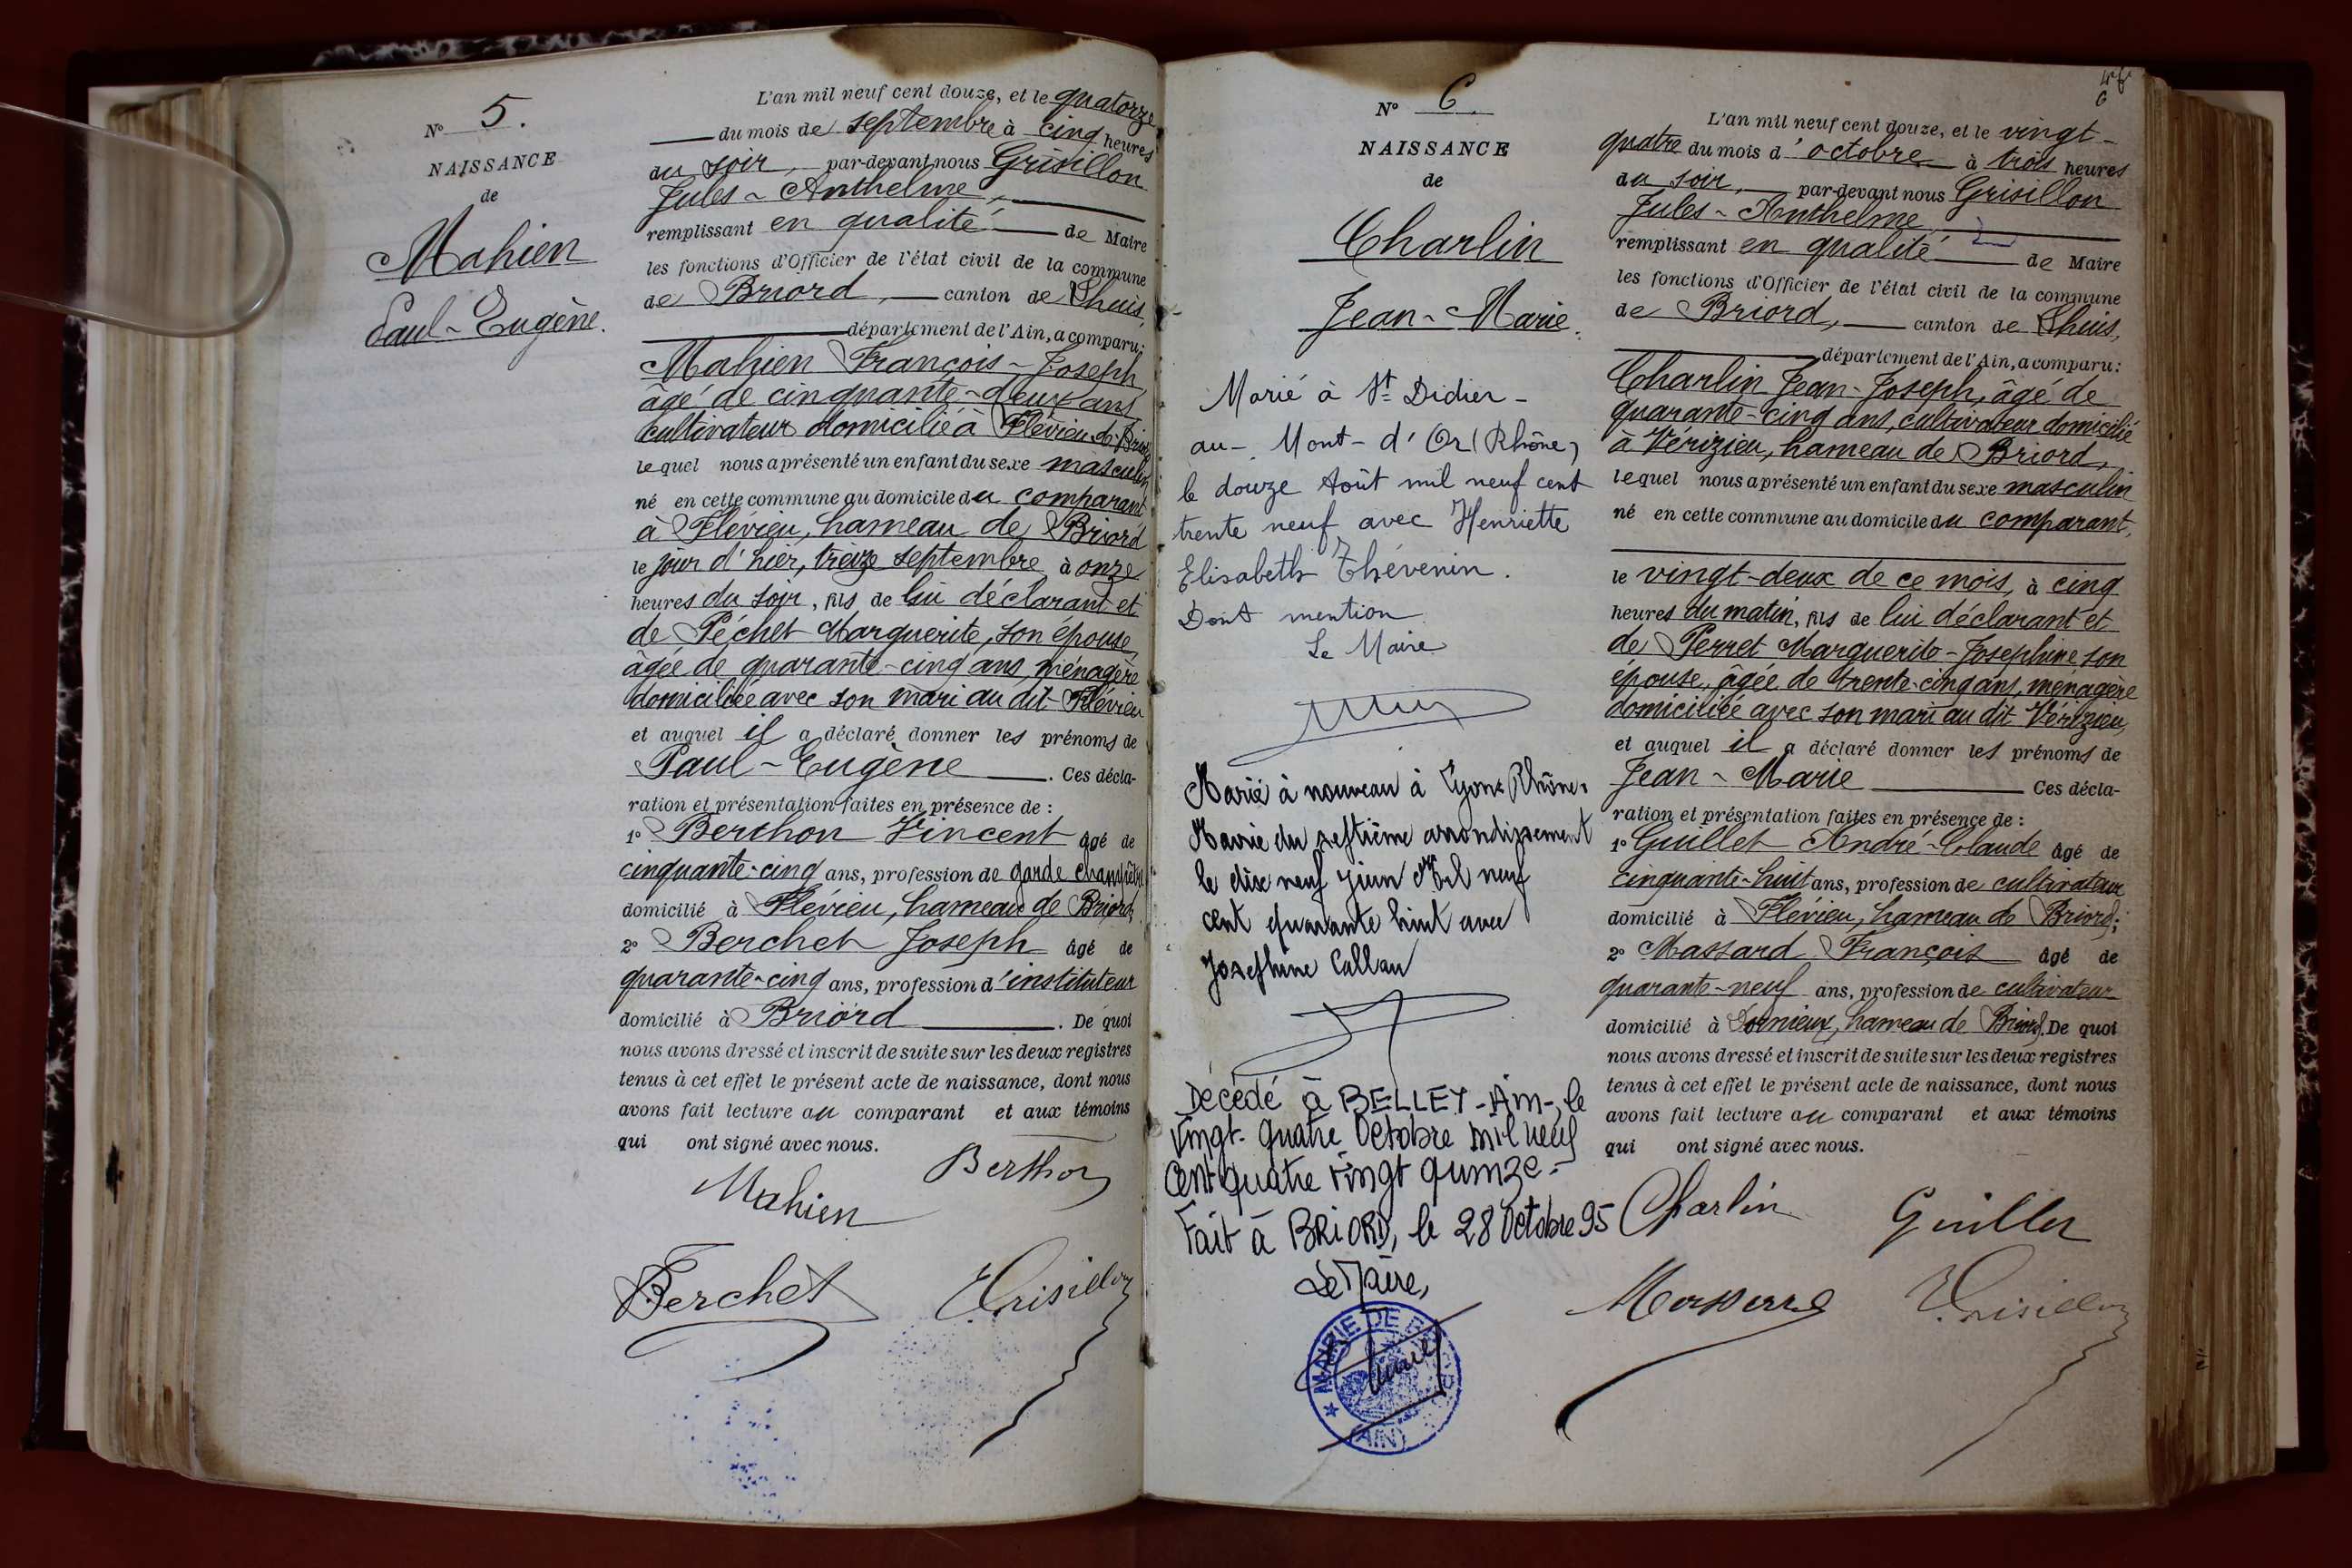 N° 5.
NAISSANCE
de
Mahien
Paul-Eugène.
L'an mil neuf cent douze, et le quatorze
du mois de septembre à cinq heures
du soir, par-devant nous Grisillon
Jules-Anthelme,
remplissant en qualité de Maire
les fonctions d'Officier de l'état civil de la commune
de Briord, canton de Lhuis,
département de l'Ain, a comparu:
Mahien François-Joseph
âgé de cinquante-deux ans
cultivateur domicilié à Flévieu
lequel nous a présenté un enfant du sexe masculin
né en cette commune au domicile du comparant
à Flévieu, hameau de Briord
le jour d'hier, treize septembre à onze
heures du soir, fils de lui déclarant et
de Péchet Marguerite, son épouse,
âgée de quarante-cinq ans, ménagère
domiciliée avec son mari au dit Flévieu
et auquel il a déclaré donner les prénoms de
Paul-Eugène. Ces décla-
ration et présentation faites en présence de :
1° Berthon Vincent âgé de
cinquante-cinq ans, profession de garde champêtre
domicilié à Flévieu, hameau de Briord,
2° Berchet Joseph âgé de
quarante-cinq ans, profession d'instituteur
domicilié à Briord. De quoi
nous avons dressé et inscrit de suite sur les deux registres
tenus à cet effet le présent acte de naissance, dont nous
avons fait lecture au comparant et aux témoins
qui ont signé avec nous.
Berthon
Mahien
Berchet Grisillon
6
N° 6.
NAISSANCE
de
Charlin
Jean-Marie.
Marié à St Didier-
au-Mont-d'Or (Rhône)
le douze Août mil neuf cent
trente neuf avec Henriette
Elisabeth Thévenin.
Dont mention
Le Maire
Marié à nouveau à Lyon Rhône.
Mairie du septième arrondissement
le dix neuf juin Mil neuf
cent quarante huit avec
Joséphine Callau
Décédé à BELLEY-Ain-, le
Vingt-quatre Octobre mil neuf
Cent quatre vingt quinze-
Fait à BRIORD, le 28 Octobre 95
Le Maire,
MAIRIE DE BRIORD
(AIN)
L'an mil neuf cent douze, et le vingt-
quatre du mois d'octobre à trois heures
du soir, par-devant nous Grisillon
Jules-Anthelme
remplissant en qualité de Maire
les fonctions d'Officier de l'état civil de la commune
de Briord, canton de Lhuis,
département de l'Ain, a comparu:
Charlin Jean-Joseph, âgé de
quarante-cinq ans, cultivateur domicilié
à Vérizieu, hameau de Briord,
lequel nous a présenté un enfant du sexe masculin
né en cette commune au domicile du comparant,
le vingt-deux de ce mois, à cinq
heures du matin, fils de lui déclarant et
de Perret Marguerite-Josephine son
épouse, âgée de trente-cinq ans, ménagère
domiciliée avec son mari au dit Vérizieu,
et auquel il a déclaré donner les prénoms de
Jean-Marie Ces décla-
ration et présentation faites en présence de :
1° Guillet André-Claude âgé de
cinquante-huit ans, profession de cultivateur
domicilié à Flévieu, hameau de Briord;
2° Massard François âgé de
quarante-neuf ans, profession de cultivateur
domicilié à hameau de Briord. De quoi
nous avons dressé et inscrit de suite sur les deux registres
tenus à cet effet le présent acte de naissance, dont nous
avons fait lecture au comparant et aux témoins
qui ont signé avec nous.
Charlin Guillet
Massard Grisillon